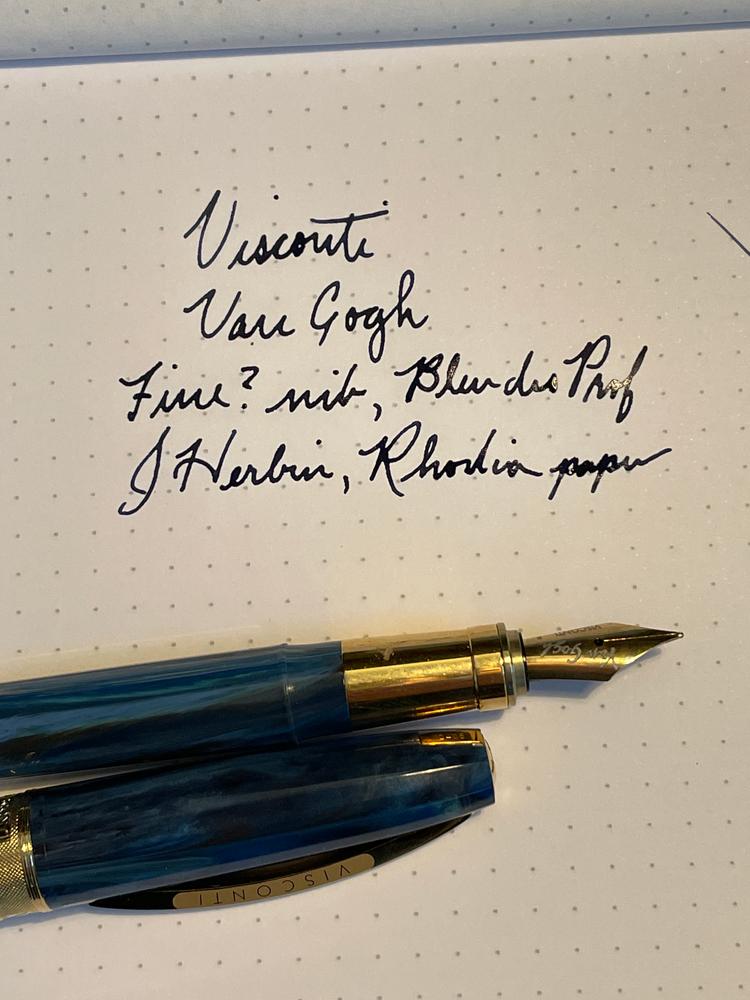 Visconti
Van Gogh
Fine? nib, Bleu des Prof
J Herbin, Rhodia paper
Van Gogh
VISCONTI